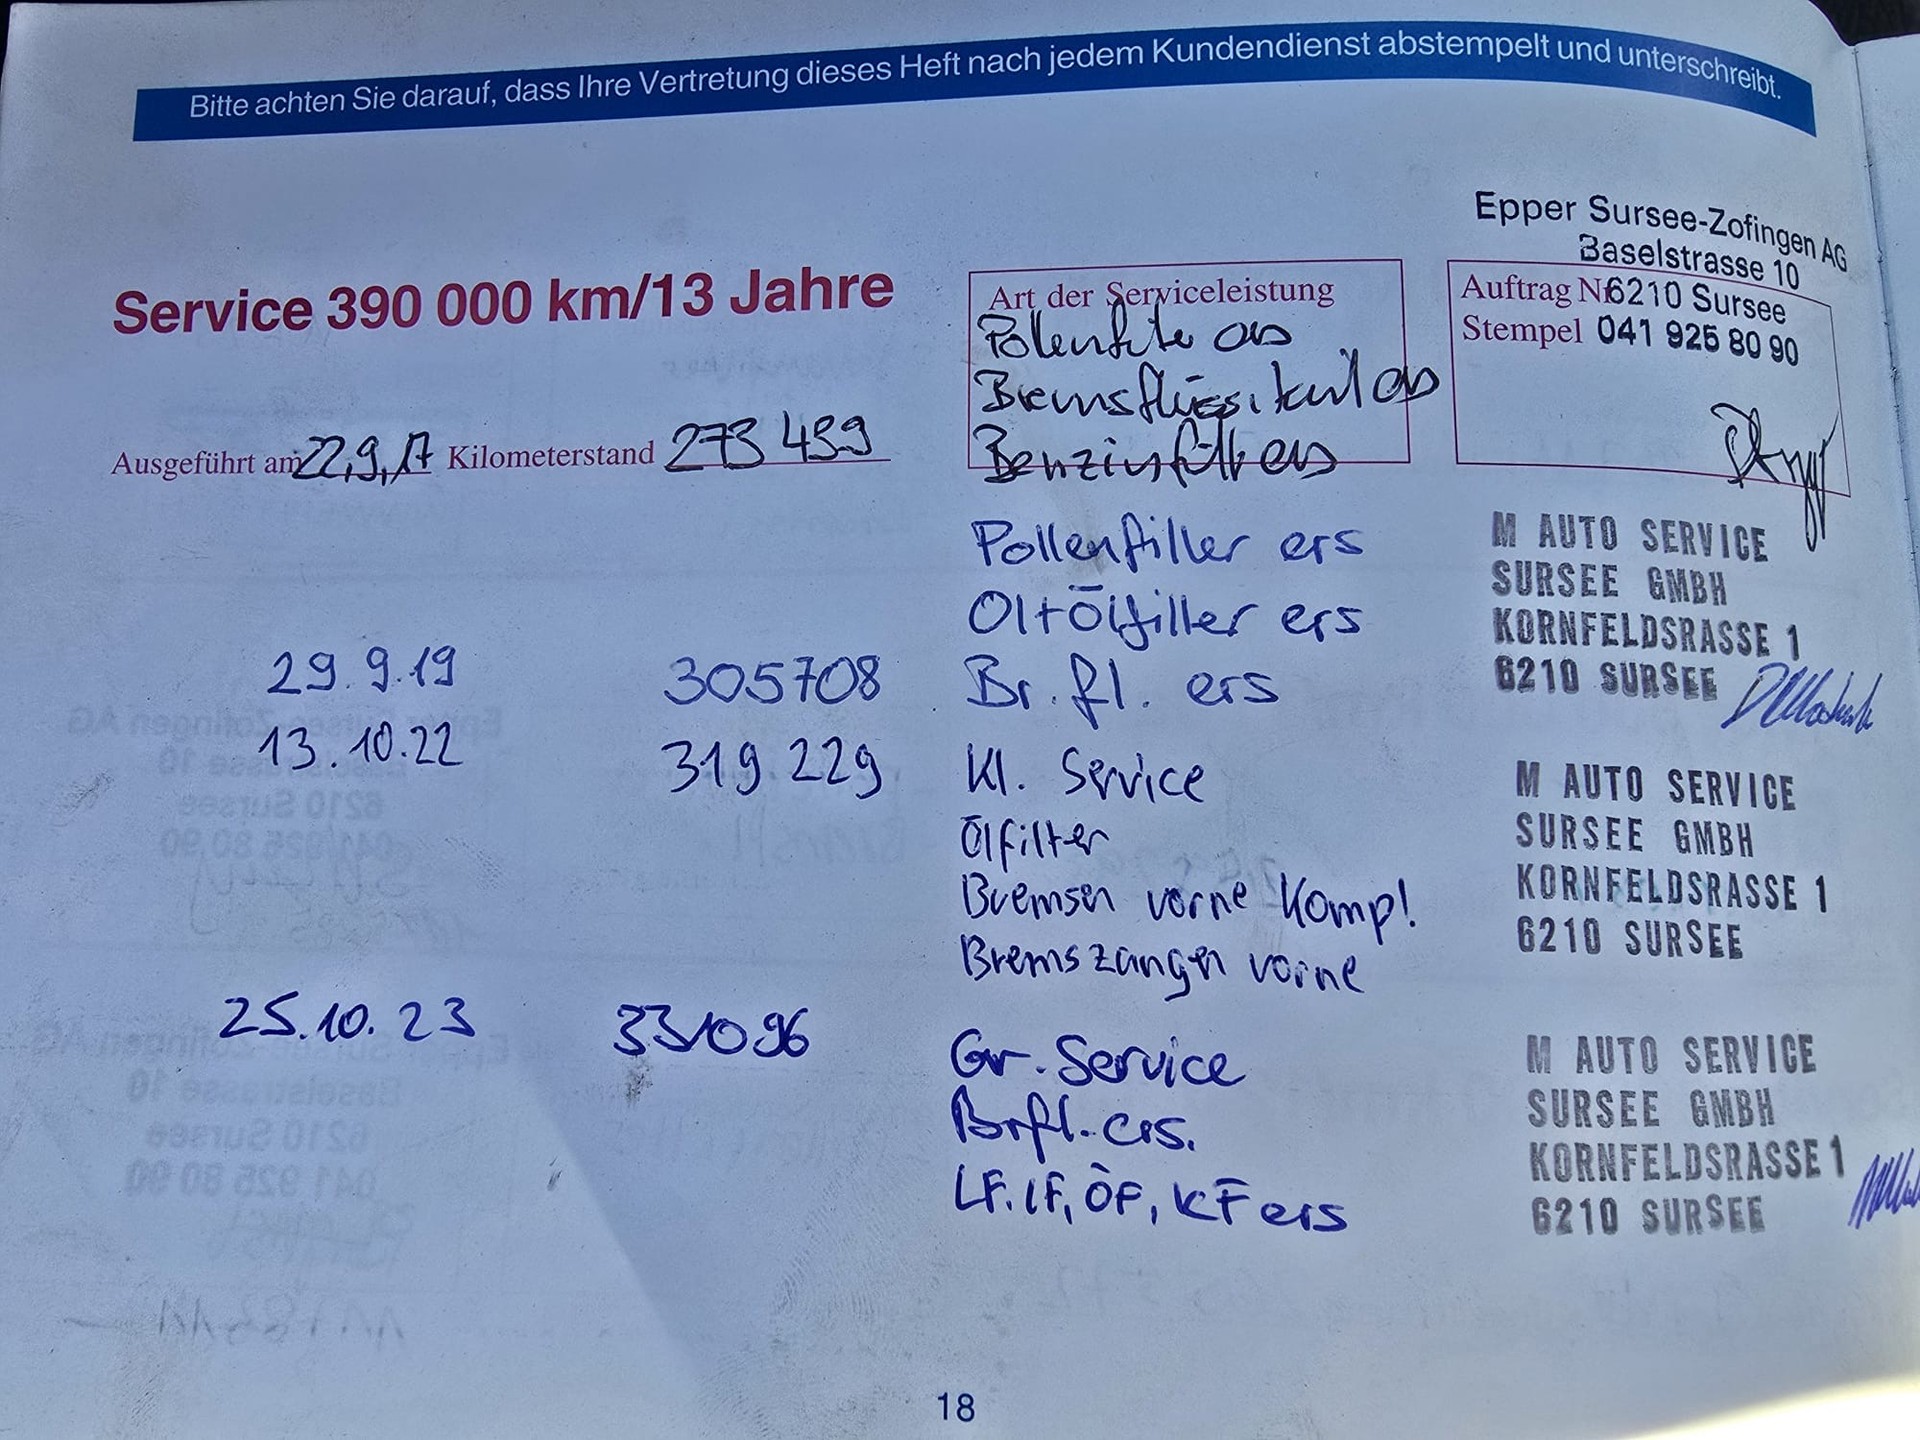 Bitte achten Sie darauf, dass Ihre Vertretung dieses Heft nach jedem Kundendienst abstempelt und unterschreibt.
Epper Sursee-Zofingen AG
Baselstrasse 10
6210 Sursee
041 925 80 90
Service 390 000 km/13 Jahre
Art der Serviceleistung
Auftrag Nr
Stempel
Pollenfilter ers
Bremsflüssikeit ers
Benzinfilt ers
Ausgeführt am 22.9.17 Kilometerstand 273 459
Pollenfiller ers
Öl+Ölfiller ers
29.9.19 305708 Br.fl. ers
M AUTO SERVICE
SURSEE GMBH
KORNFELDSRASSE 1
6210 SURSEE
13.10.22 319 229 Kl. Service
Ölfilter
Bremsen vorne Komp!
Bremszangen vorne
M AUTO SERVICE
SURSEE GMBH
KORNFELDSRASSE 1
6210 SURSEE
25.10.23 331096 Gr. Service
Brfl. ers.
LF. IF, ÖF, KF ers
M AUTO SERVICE
SURSEE GMBH
KORNFELDSRASSE 1
6210 SURSEE
18